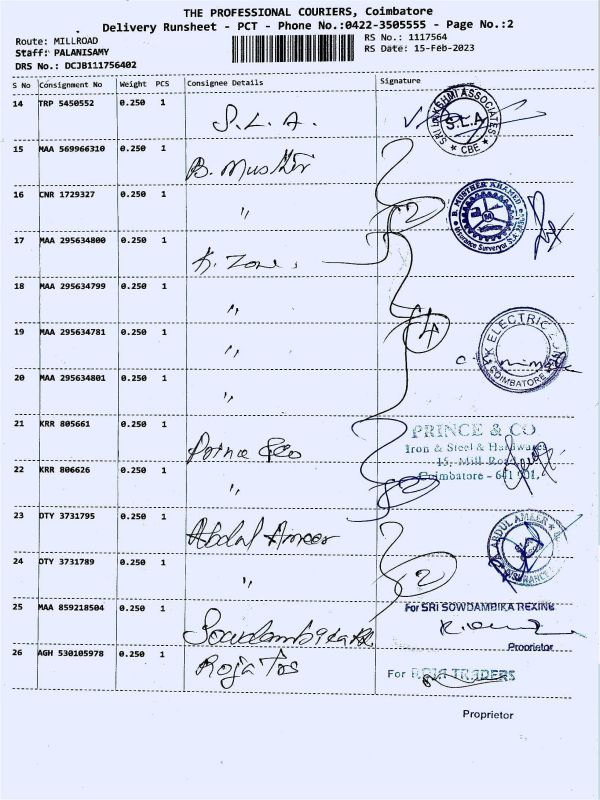 THE PROFESSIONAL COURIERS, Coimbatore
Delivery Runsheet - PCT - Phone No.:0422-3505555 - Page No.:2
Route: MILLROAD
Staff: PALANISAMY
DRS No.: DCJB111756402
RS No.: 1117564
RS Date: 15-Feb-2023
S No Consignment No Weight PCS Consignee Details Signature
14 TRP 5450552 0.250 1 S.L.A.
SRI LAKSHMI ASSOCIATES
S.L.A
CBE
15 MAA 569966310 0.250 1 B. Musthir
16 CNR 1729327 0.250 1 "
2
B. MUSTHER AHAMED
Insurance Surveyor
17 MAA 295634800 0.250 1 K. Zone,
18 MAA 295634799 0.250 1 "
4
19 MAA 295634781 0.250 1 "
K ELECTRIC
COIMBATORE
20 MAA 295634801 0.250 1 "
21 KRR 805661 0.250 1 Prince & Co
PRINCE & CO
Iron & Steel & Hardware
15, Mill Road
Coimbatore - 641 001.
22 KRR 806626 0.250 1 "
23 DTY 3731795 0.250 1 Abdul Ameer
ABDUL AMEER
INSURANCE
24 DTY 3731789 0.250 1 "
2
25 MAA 859218504 0.250 1 Sowdambika Rx
For SRI SOWDAMBIKA REXINE
Proprietor
26 AGH 530105978 0.250 1 Roja Tos
For ROJA TRADERS
Proprietor